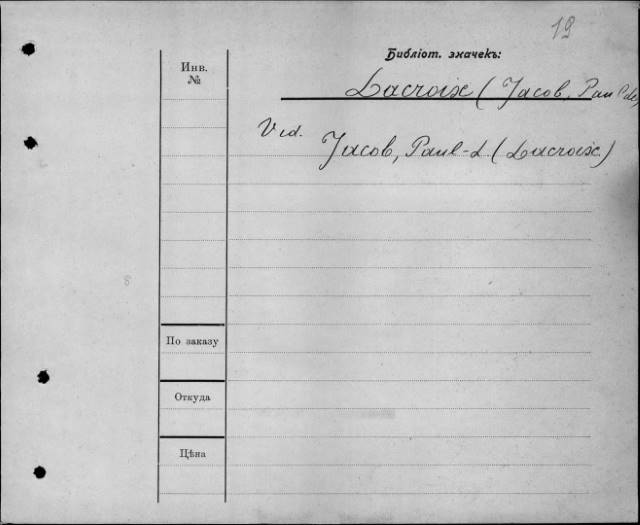 19
Библіот. значекъ:
Инв.
№
Lacroix (Jacob, Paul
Vid.
Jacob, Paul-L. (Lacroix)
По заказу
Откуда
Цѣна